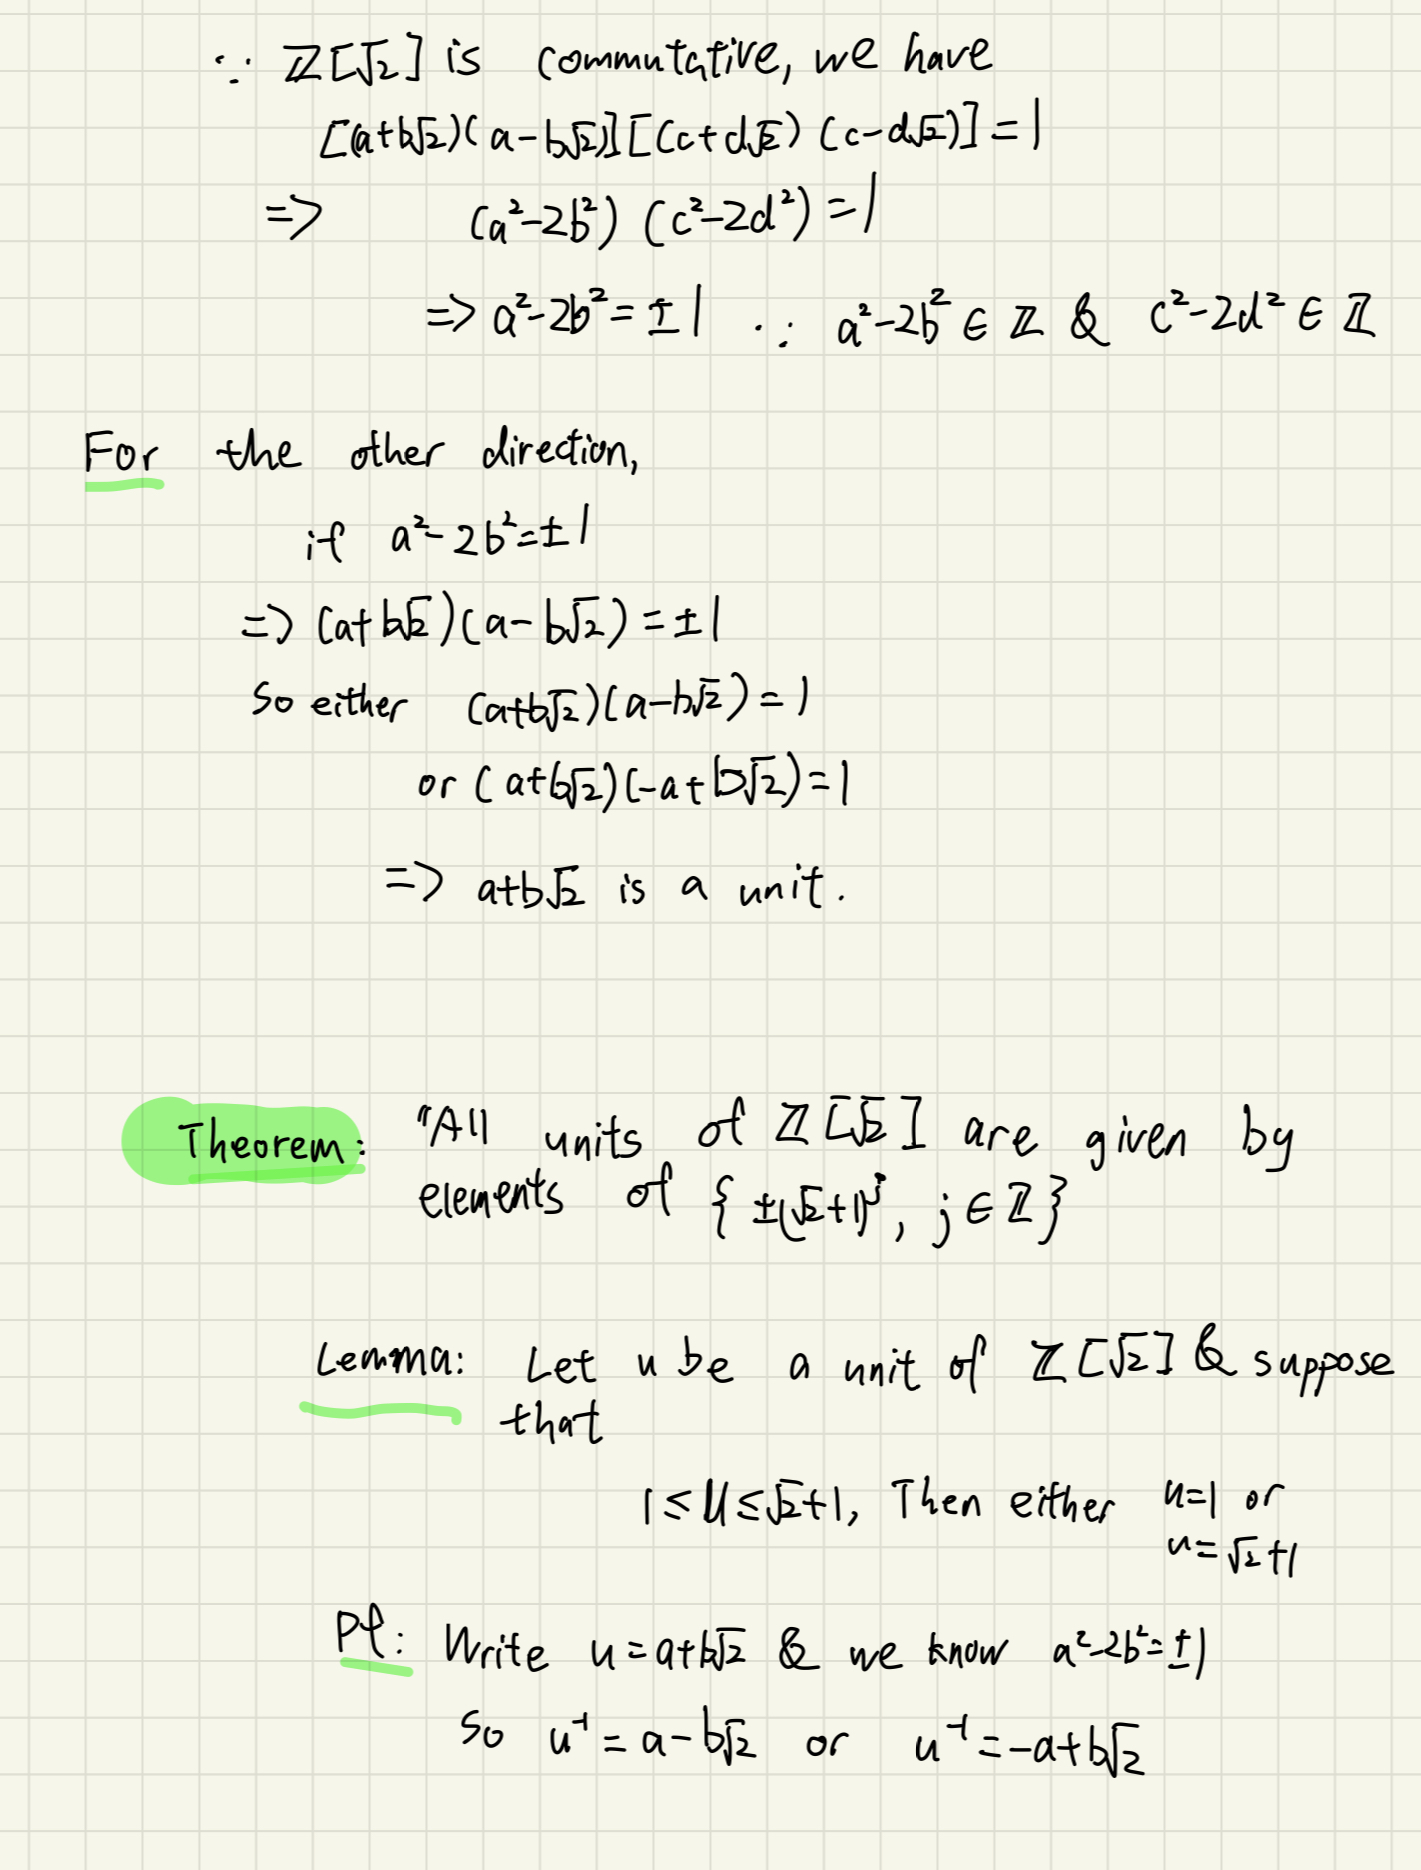 ∵ ℤ[√2] is commutative, we have
[(a+b√2)(a-b√2)][(c+d√2)(c-d√2)]=1
=> (a²-2b²)(c²-2d²)=1
=> a²-2b²=±1 ∵ a²-2b² ∈ ℤ & c²-2d² ∈ ℤ
For the other direction,
if a²-2b²=±1
=> (a+b√2)(a-b√2)=±1
So either (a+b√2)(a-b√2)=1
or (a+b√2)(-a+b√2)=1
=> a+b√2 is a unit.
Theorem: "All units of ℤ[√2] are given by
elements of {±(√2+1)ʲ, j∈ℤ}
Lemma: Let u be a unit of ℤ[√2] & suppose
that
1≤u≤√2+1, Then either u=1 or
u=√2+1
Pf: Write u=a+b√2 & we know a²-2b²=±1
So u⁻¹=a-b√2 or u⁻¹=-a+b√2